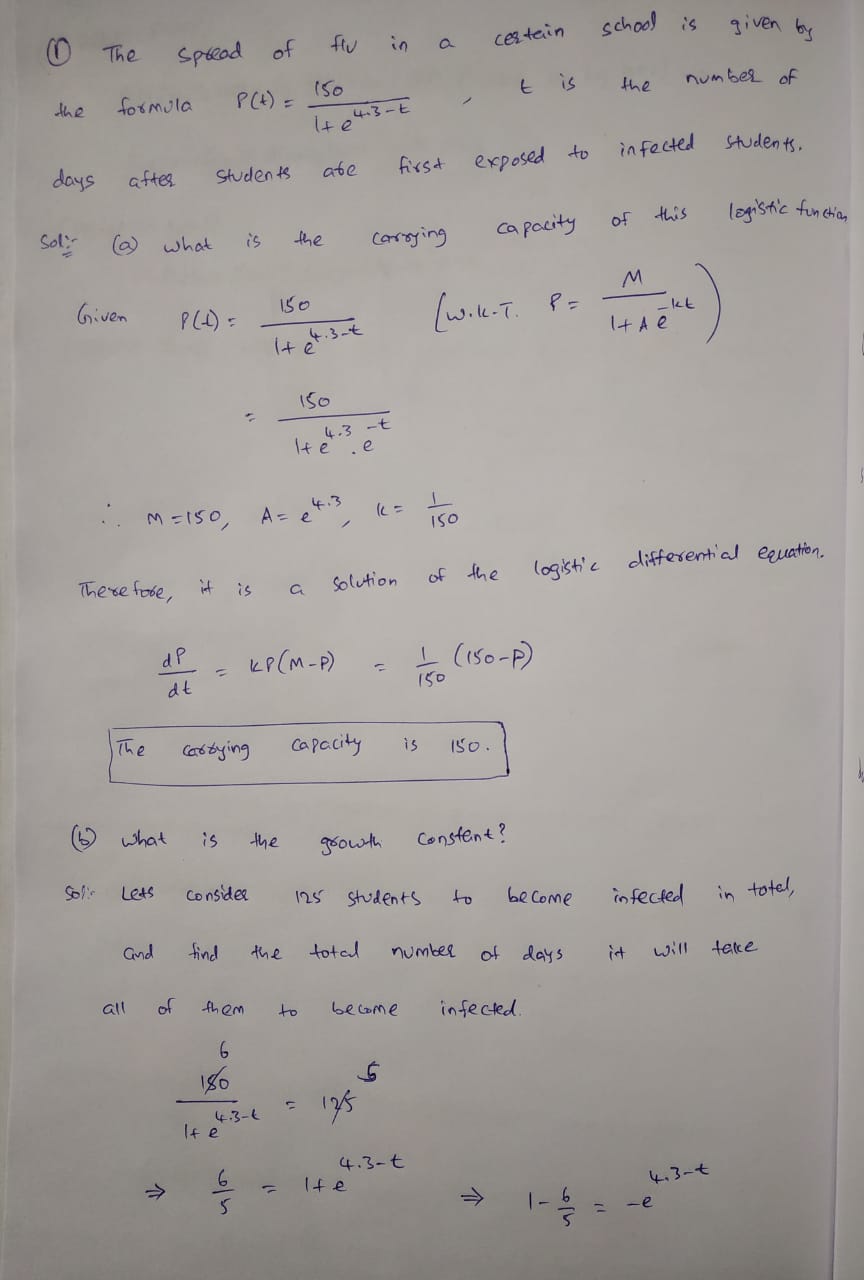 ① The spread of flu in a certain school is given by
the formula P(t) = 150 / (1 + e^(4.3-t)) , t is the number of
days after students are first exposed to infected students.
Sol:- (a) what is the carrying capacity of this logistic function
Given P(t) = 150 / (1 + e^(4.3-t)) (W.K.T. P = M / (1 + A e^(-kt)))
= 150 / (1 + e^(4.3) . e^(-t))
∴ M = 150, A = e^(4.3), k = 1/150
Therefore, it is a solution of the logistic differential equation.
dP/dt = kP(M-P) = 1/150 (150-P)
The carrying capacity is 150.
(b) what is the growth constent?
Sol:- Lets consider 125 students to become infected in total,
and find the total number of days it will take
all of them to become infected.
6 5
150 / (1 + e^(4.3-t)) = 125
⇒ 6/5 = 1 + e^(4.3-t) ⇒ 1 - 6/5 = -e^(4.3-t)